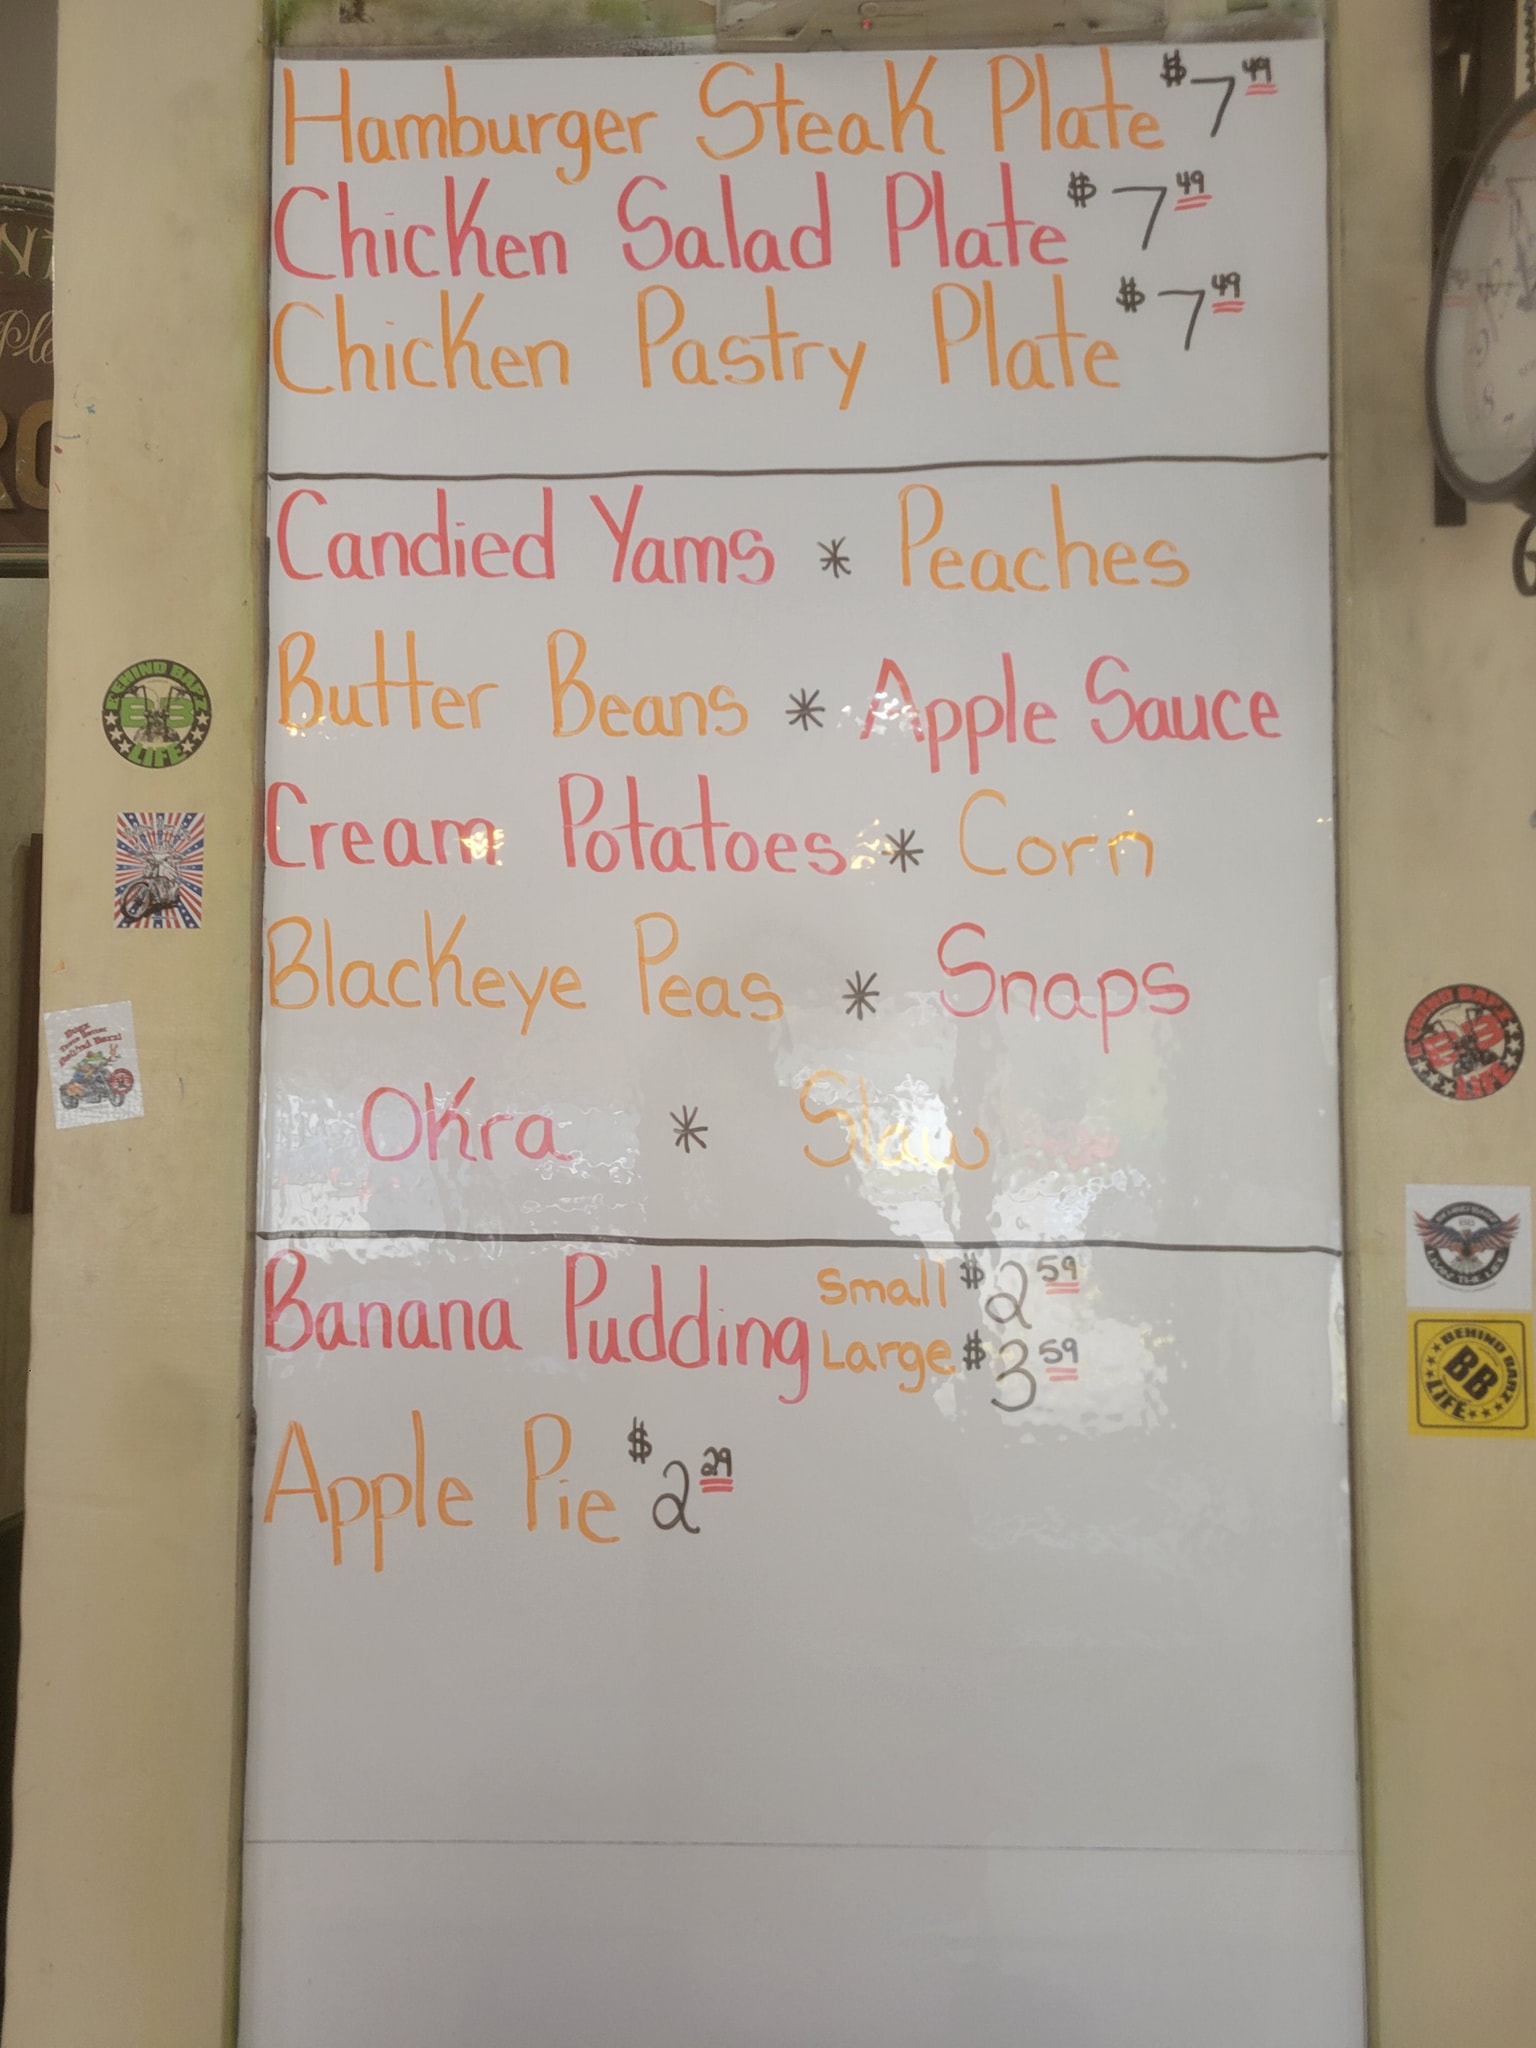 Hamburger Steak Plate $7 49
Chicken Salad Plate $7 49
Chicken Pastry Plate $7 49
Candied Yams * Peaches
Butter Beans * Apple Sauce
Cream Potatoes * Corn
Blackeye Peas * Snaps
Okra * Slaw
Banana Pudding Small $2 59
Large $3 59
Apple Pie $2 29
BEHIND BARZ
LIFE
BEHIND BARZ
LIFE
BEHIND BARZ
BB
LIFE